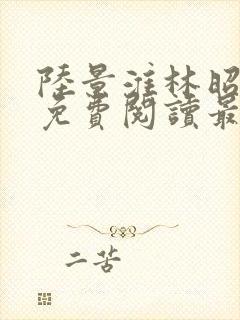 陸景淮林昭
免費閱讀最
二苦